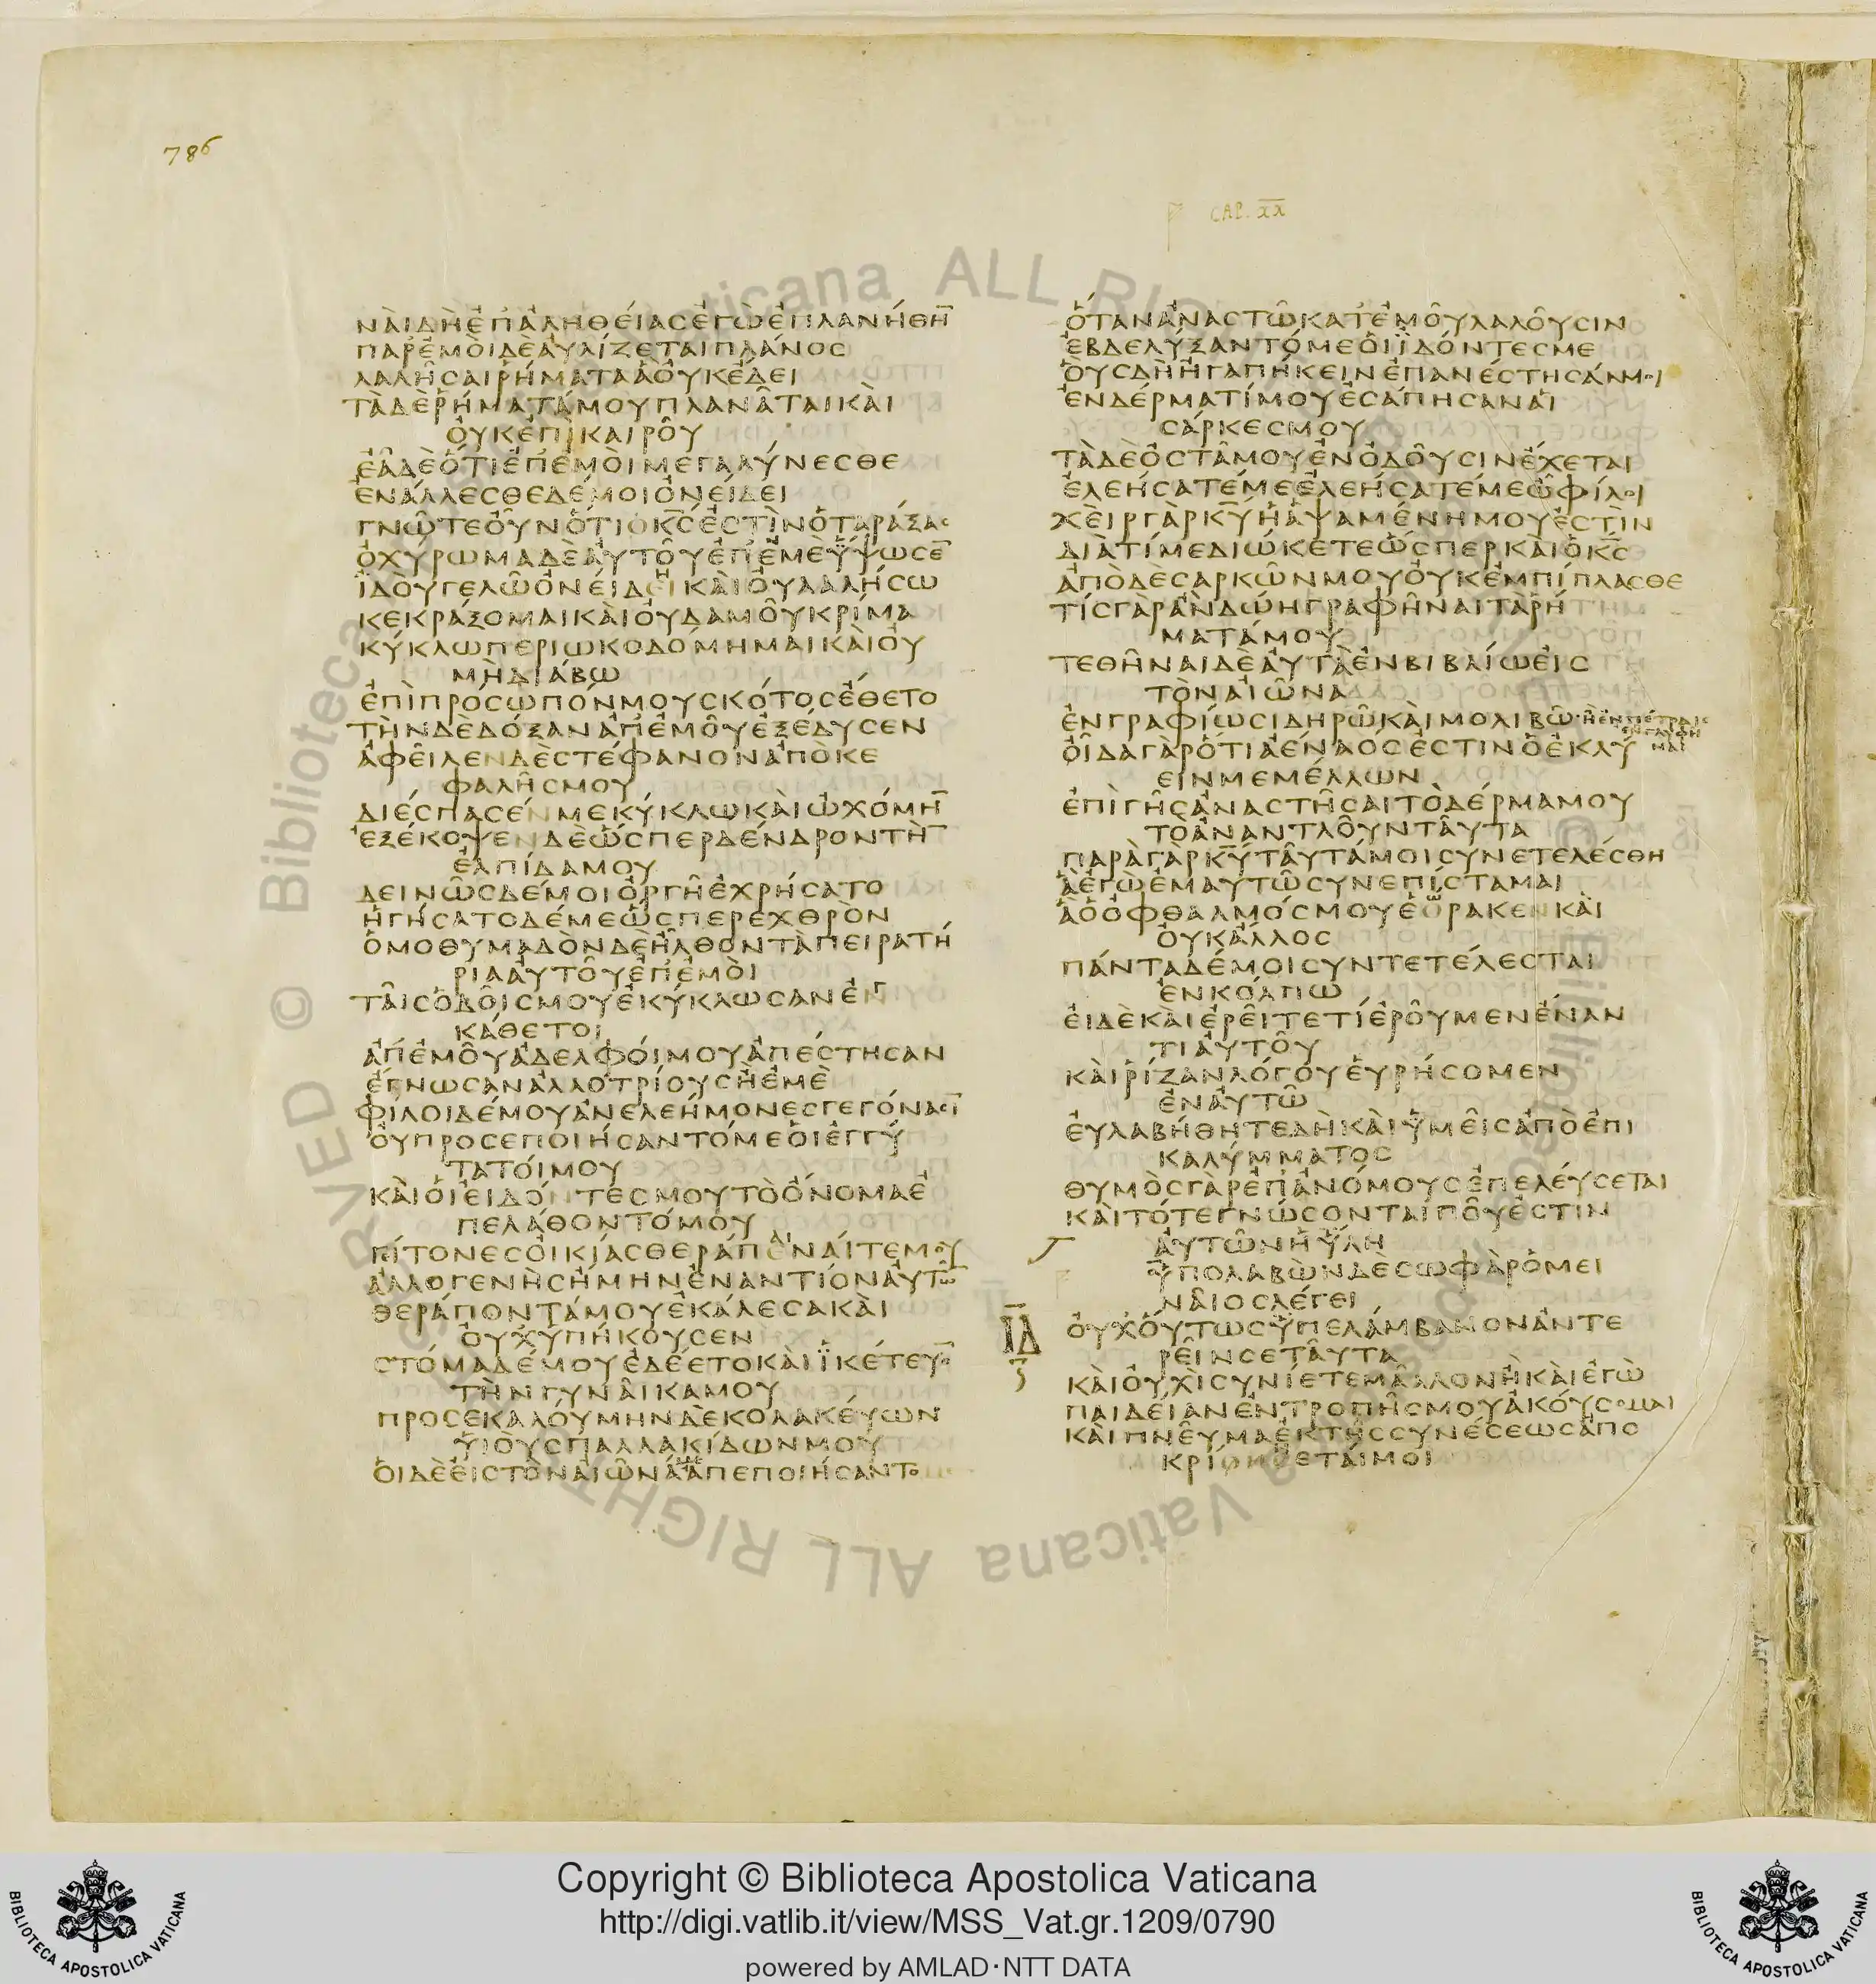 786
CAP. XX
ΝΑΙΔΗΕΠΑΛΗΘΕΙΑϹΕΓΩΕΠΛΑΝΗΘΗ̅
ΠΑΡΕΜΟΙΔΕΑΥΛΙΖΕΤΑΙΠΛΑΝΟϹ
ΛΑΛΗϹΑΙΡΗΜΑΤΑΑΟΥΚΕΔΕΙ
ΤΑΔΕΡΗΜΑΤΑΜΟΥΠΛΑΝΑΤΑΙΚΑΙ
ΟΥΚΕΠΙΚΑΙΡΟΥ
ΕΑΔΕΟΤΙΕΠΕΜΟΙΜΕΓΑΛΥΝΕϹΘΕ
ΕΝΑΛΛΕϹΘΕΔΕΜΟΙΟΝΕΙΔΕΙ
ΓΝΩΤΕΟΥΝΟΤΙΟΚ̅Ϲ̅ΕϹΤΙΝΟΤΑΡΑΞΑϹ
ΟΧΥΡΩΜΑΔΕΑΥΤΟΥΕΠΕΜΕΥΨΩϹΕ̅
ΙΔΟΥΓΕΛΩΟΝΕΙΔΕΙΚΑΙΟΥΛΑΛΗϹΩ
ΚΕΚΡΑΞΟΜΑΙΚΑΙΟΥΔΑΜΟΥΚΡΙΜΑ
ΚΥΚΛΩΠΕΡΙΩΚΟΔΟΜΗΜΑΙΚΑΙΟΥ
ΜΗΔΙΑΒΩ
ΕΠΙΠΡΟϹΩΠΟΝΜΟΥϹΚΟΤΟϹΕΘΕΤΟ
ΤΗΝΔΕΔΟΞΑΝΑΠΕΜΟΥΕΞΕΔΥϹΕΝ
ΑΦΕΙΛΕΝΔΕϹΤΕΦΑΝΟΝΑΠΟΚΕ
ΦΑΛΗϹΜΟΥ
ΔΙΕϹΠΑϹΕΝΜΕΚΥΚΛΩΚΑΙΩΧΟΜΗ̅
ΕΞΕΚΟΨΕΝΔΕΩϹΠΕΡΔΕΝΔΡΟΝΤΗ̅
ΕΛΠΙΔΑΜΟΥ
ΔΕΙΝΩϹΔΕΜΟΙΟΡΓΗΕΧΡΗϹΑΤΟ
ΗΓΗϹΑΤΟΔΕΜΕΩϹΠΕΡΕΧΘΡΟΝ
ΟΜΟΘΥΜΑΔΟΝΔΕΗΛΘΟΝΤΑΠΕΙΡΑΤΗ
ΡΙΑΑΥΤΟΥΕΠΕΜΟΙ
ΤΑΙϹΟΔΟΙϹΜΟΥΕΚΥΚΛΩϹΑΝΕΝ
ΚΑΘΕΤΟΙ
ΑΠΕΜΟΥΑΔΕΛΦΟΙΜΟΥΑΠΕϹΤΗϹΑΝ
ΕΓΝΩϹΑΝΑΛΛΟΤΡΙΟΥϹΗΕΜΕ
ΦΙΛΟΙΔΕΜΟΥΑΝΕΛΕΗΜΟΝΕϹΓΕΓΟΝΑϹΙ̅
ΟΥΠΡΟϹΕΠΟΙΗϹΑΝΤΟΜΕΟΙΕΓΓΥ
ΤΑΤΟΙΜΟΥ
ΚΑΙΟΙΕΙΔΟΝΤΕϹΜΟΥΤΟΟΝΟΜΑΕ
ΠΕΛΑΘΟΝΤΟΜΟΥ
ΓΙΤΟΝΕϹΟΙΚΙΑϹΘΕΡΑΠΑΙΝΑΙΤΕΜΟΥ
ΑΛΛΟΓΕΝΗϹΗΜΗΝΕΝΑΝΤΙΟΝΑΥΤΩ̅
ΘΕΡΑΠΟΝΤΑΜΟΥΕΚΑΛΕϹΑΚΑΙ
ΟΥΧΥΠΗΚΟΥϹΕΝ
ϹΤΟΜΑΔΕΜΟΥΕΔΕΕΤΟΚΑΙΙΚΕΤΕΥΟ̅
ΤΗΝΓΥΝΑΙΚΑΜΟΥ
ΠΡΟϹΕΚΑΛΟΥΜΗΝΔΕΚΟΛΑΚΕΥΩΝ
ΥΙΟΥϹΠΑΛΛΑΚΙΔΩΝΜΟΥ
ΟΙΔΕΕΙϹΤΟΝΑΙΩΝΑΑΠΕΠΟΙΗϹΑΝΤΟ
ΟΤΑΝΑΝΑϹΤΩΚΑΤΕΜΟΥΛΑΛΟΥϹΙΝ
ΕΒΔΕΛΥΞΑΝΤΟΜΕΟΙΙΔΟΝΤΕϹΜΕ
ΟΥϹΔΗΗΓΑΠΗΚΕΙΝΕΠΑΝΕϹΤΗϹΑΝΜΟΙ
ΕΝΔΕΡΜΑΤΙΜΟΥΕϹΑΠΗϹΑΝΑΙ
ϹΑΡΚΕϹΜΟΥ
ΤΑΔΕΟϹΤΑΜΟΥΕΝΟΔΟΥϹΙΝΕΧΕΤΑΙ
ΕΛΕΗϹΑΤΕΜΕΕΛΕΗϹΑΤΕΜΕΩΦΙΛΟΙ
ΧΕΙΡΓΑΡΚ̅Υ̅ΗΑΨΑΜΕΝΗΜΟΥΕϹΤΙΝ
ΔΙΑΤΙΜΕΔΙΩΚΕΤΕΩϹΠΕΡΚΑΙΟΚ̅Ϲ̅
ΑΠΟΔΕϹΑΡΚΩΝΜΟΥΟΥΚΕΜΠΙΠΛΑϹΘΕ
ΤΙϹΓΑΡΑΝΔΩΗΓΡΑΦΗΝΑΙΤΑΡΗ
ΜΑΤΑΜΟΥ
ΤΕΘΗΝΑΙΔΕΑΥΤΑΕΝΒΙΒΛΙΩΕΙϹ
ΤΟΝΑΙΩΝΑ
ΕΝΓΡΑΦΙΩϹΙΔΗΡΩΚΑΙΜΟΛΙΒΩ·ΗΕΝΠΕΤΡΑΙϹ
ΕΝΓΛΥΦΗ
ΝΑΙ
ΟΙΔΑΓΑΡΟΤΙΑΕΝΑΟϹΕϹΤΙΝΟΕΚΛΥ
ΕΙΝΜΕΜΕΛΛΩΝ
ΕΠΙΓΗϹΑΝΑϹΤΗϹΑΙΤΟΔΕΡΜΑΜΟΥ
ΤΟΑΝΑΝΤΛΟΥΝΤΑΥΤΑ
ΠΑΡΑΓΑΡΚ̅Υ̅ΤΑΥΤΑΜΟΙϹΥΝΕΤΕΛΕϹΘΗ
ΑΕΓΩΕΜΑΥΤΩϹΥΝΕΠΙϹΤΑΜΑΙ
ΑΟΟΦΘΑΛΜΟϹΜΟΥΕΟΡΑΚΕΝΚΑΙ
ΟΥΚΑΛΛΟϹ
ΠΑΝΤΑΔΕΜΟΙϹΥΝΤΕΤΕΛΕϹΤΑΙ
ΕΝΚΟΛΠΩ
ΕΙΔΕΚΑΙΕΡΕΙΤΕΤΙΕΡΟΥΜΕΝΕΝΑΝ
ΤΙΑΥΤΟΥ
ΚΑΙΡΙΖΑΝΛΟΓΟΥΕΥΡΗϹΟΜΕΝ
ΕΝΑΥΤΩ
ΕΥΛΑΒΗΘΗΤΕΔΗΚΑΙΥΜΕΙϹΑΠΟΕΠΙ
ΚΑΛΥΜΜΑΤΟϹ
ΘΥΜΟϹΓΑΡΕΠΑΝΟΜΟΥϹΕΠΕΛΕΥϹΕΤΑΙ
ΚΑΙΤΟΤΕΓΝΩϹΟΝΤΑΙΠΟΥΕϹΤΙΝ
ΑΥΤΩΝΗΥΛΗ
ΥΠΟΛΑΒΩΝΔΕϹΩΦΑΡΟΜΕΙ
ΝΑΙΟϹΛΕΓΕΙ
Ι̅Δ̅ ΟΥΧΟΥΤΩϹΥΠΕΛΑΜΒΑΝΟΝΑΝΤΕ
ΡΕΙΝϹΕΤΑΥΤΑ
ΚΑΙΟΥΧΙϹΥΝΙΕΤΕΜΑΛΛΟΝΗΚΑΙΕΓΩ
ΠΑΙΔΕΙΑΝΕΝΤΡΟΠΗϹΜΟΥΑΚΟΥϹΟΜΑΙ
ΚΑΙΠΝΕΥΜΑΕΚΤΗϹϹΥΝΕϹΕΩϹΑΠΟ
ΚΡΙΝΕΤΑΙΜΟΙ
Copyright © Biblioteca Apostolica Vaticana
http://digi.vatlib.it/view/MSS_Vat.gr.1209/0790
powered by AMLAD·NTT DATA